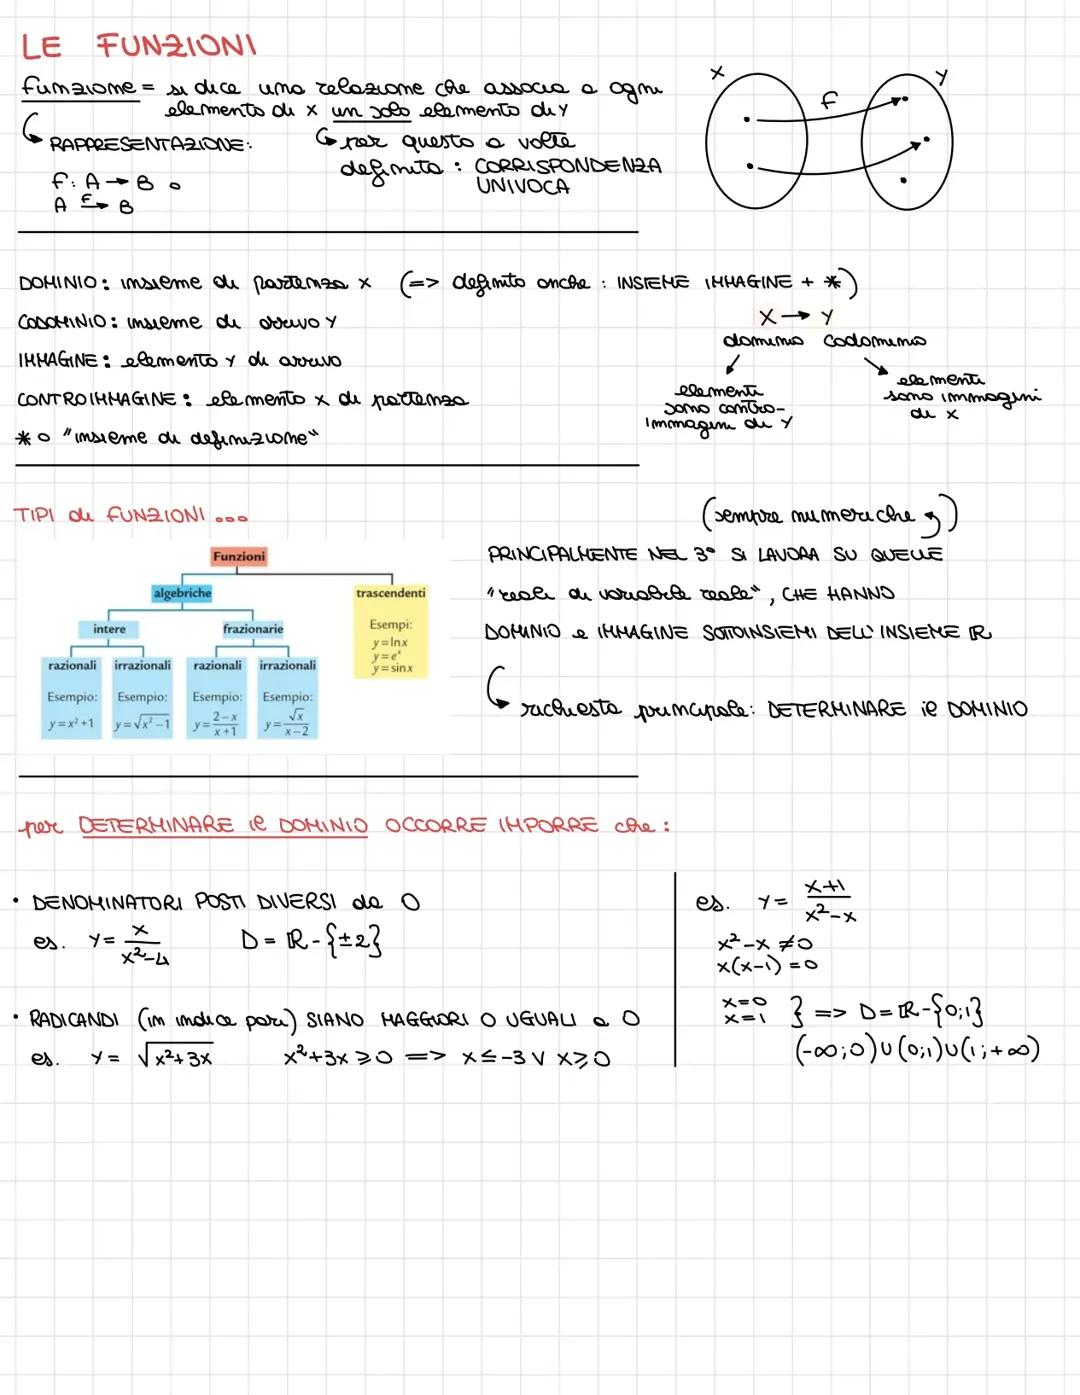 LE FUNZIONI
funzione = si dice una relazione che associa a ogni
elemento di x un solo elemento di y
RAPPRESENTAZIONE:
per questo a volte
definita : CORRISPONDENZA
UNIVOCA
f: A → B o
A f→ B
x
y
f
DOMINIO: insieme di partenza x (=> definito anche : INSIEME IMMAGINE + *)
CODOMINIO: insieme di arrivo y
IMMAGINE: elemento y di arrivo
CONTROIMMAGINE: elemento x di partenza
* o "insieme di definizione"
X → Y
dominio codominio
elementi
sono contro-
immagini di y
elementi
sono immagini
di x
TIPI di FUNZIONI ...
Funzioni
algebriche
trascendenti
intere
frazionarie
razionali irrazionali razionali irrazionali
Esempio: Esempio: Esempio: Esempio:
y=x²+1 y=√x²−1 y=2−x/x+1 y=√x/x−2
Esempi:
y=lnx
y=eˣ
y=sinx
(sempre numeriche)
PRINCIPALMENTE NEL 3° SI LAVORA SU QUELLE
"reali di variabile reale", CHE HANNO
DOMINIO e IMMAGINE SOTTOINSIEMI DELL'INSIEME ℝ
richiesta principale: DETERMINARE il DOMINIO
per DETERMINARE il DOMINIO OCCORRE IMPORRE che :
• DENOMINATORI POSTI DIVERSI da 0
es. y= x/x²-4 D= ℝ-{±2}
• RADICANDI (in indice pari) SIANO MAGGIORI O UGUALI a 0
es. y= √x²+3x x²+3x ⩾ 0 => x≤-3 ∨ x⩾0
es. y= x+1/x²-x
x²-x ≠0
x(x-1) =0
x=0
x=1 } => D=ℝ-{0;1}
(-∞;0)∪(0;1)∪(1;+∞)